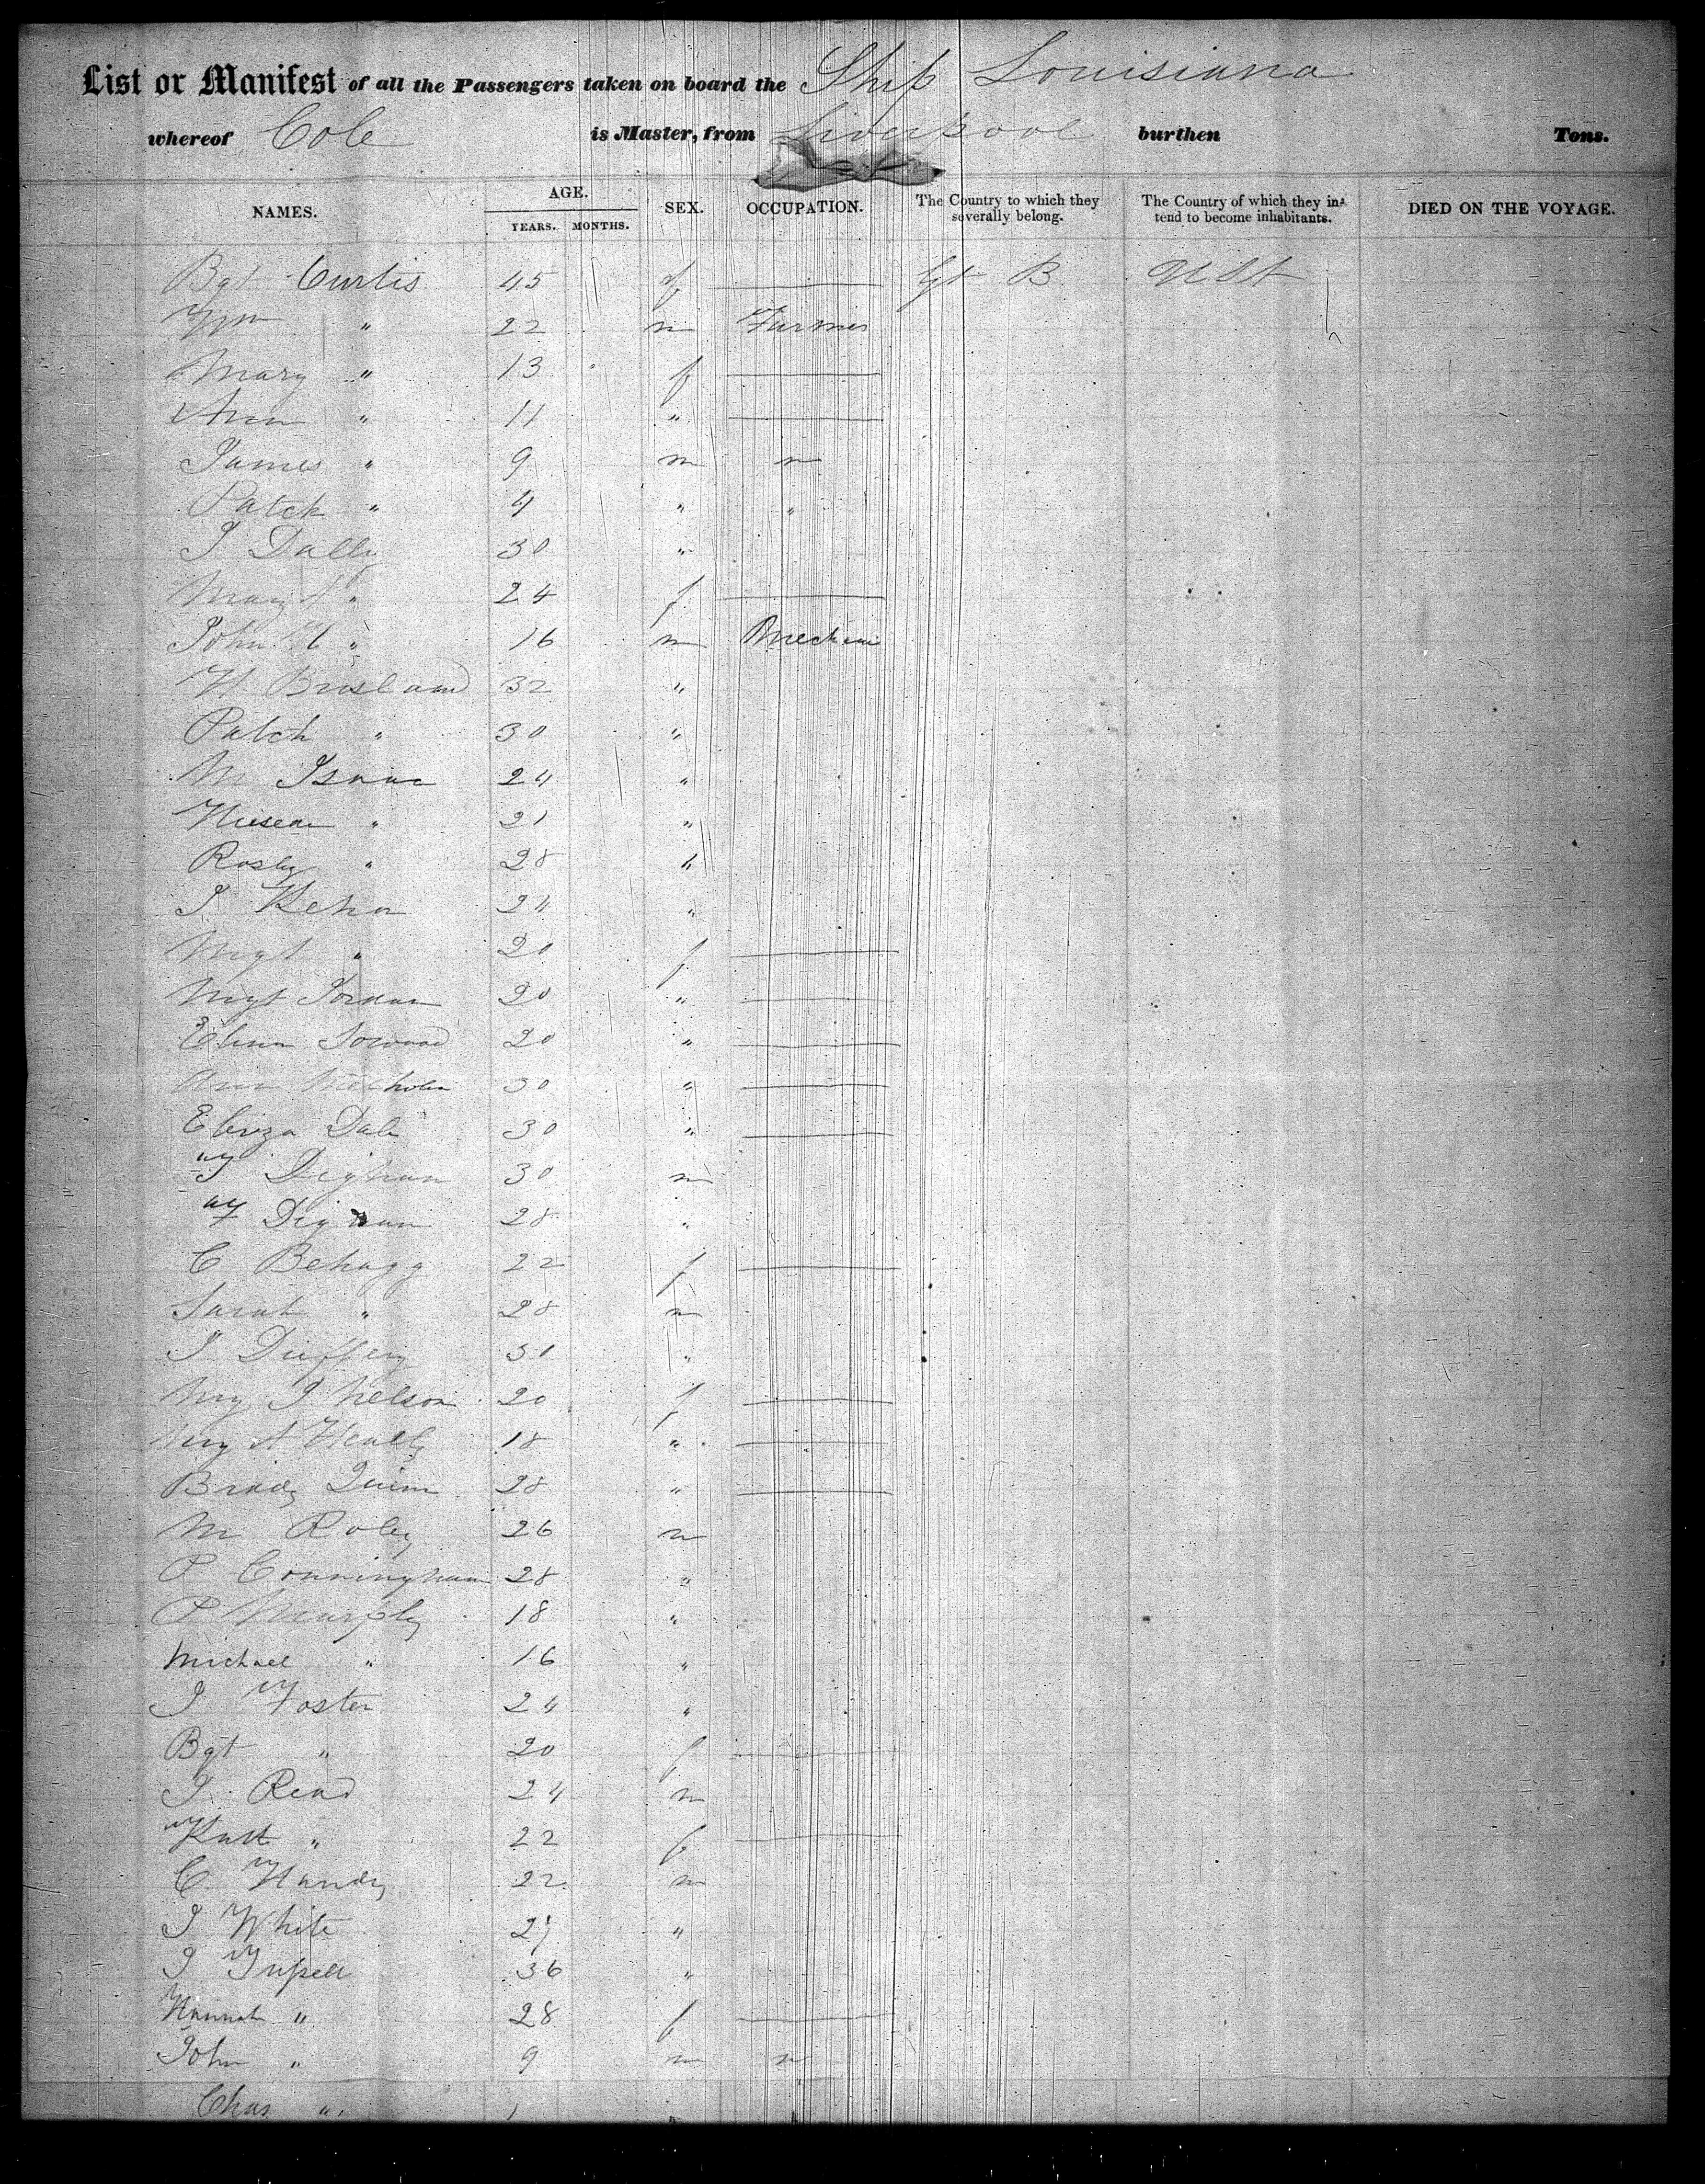 List or Manifest of all the Passengers taken on board the Ship Louisiana
whereof Cole is Master, from Liverpool burthen Tons.
NAMES. AGE. YEARS. MONTHS. SEX. OCCUPATION. The Country to which they severally belong. The Country of which they intend to become inhabitants. DIED ON THE VOYAGE.
Bgt Curtis 45 f — Gt B U St
Wm " 22 m Farmer
Mary " 13 f —
Ann " 11 " —
James " 9 m
Patck " 4 " "
J Dally 30 "
Mary A " 24 f —
John " 16 m Mechani
H 32 "
Patck " 30 "
M Isaac 24 "
" 21 "
Rosby " 28 "
J Kehn 24 "
Mgt " 20 f —
Mgt Jordan 20 " —
Ellen 20 " —
Ann 30 " —
Eliza Dale 30 " —
Dignan 30 m
Dignan 28 "
C Behagg 22 f —
Sarah " 28 m
J Duffey 31 "
My J Nelson 20 f —
My A Heally 18 " —
Bridy Quinn 28 " —
M Roley 26 m
P Conningham 28 "
P Murphy 18 "
Michael " 16 "
J Foster 24 "
Bgt " 20 f —
J Read 24 m
Kate " 22 f —
C Handy 22 m
J White 27 "
J 36 "
Hannah " 28 f —
John " 9 m
Chas "